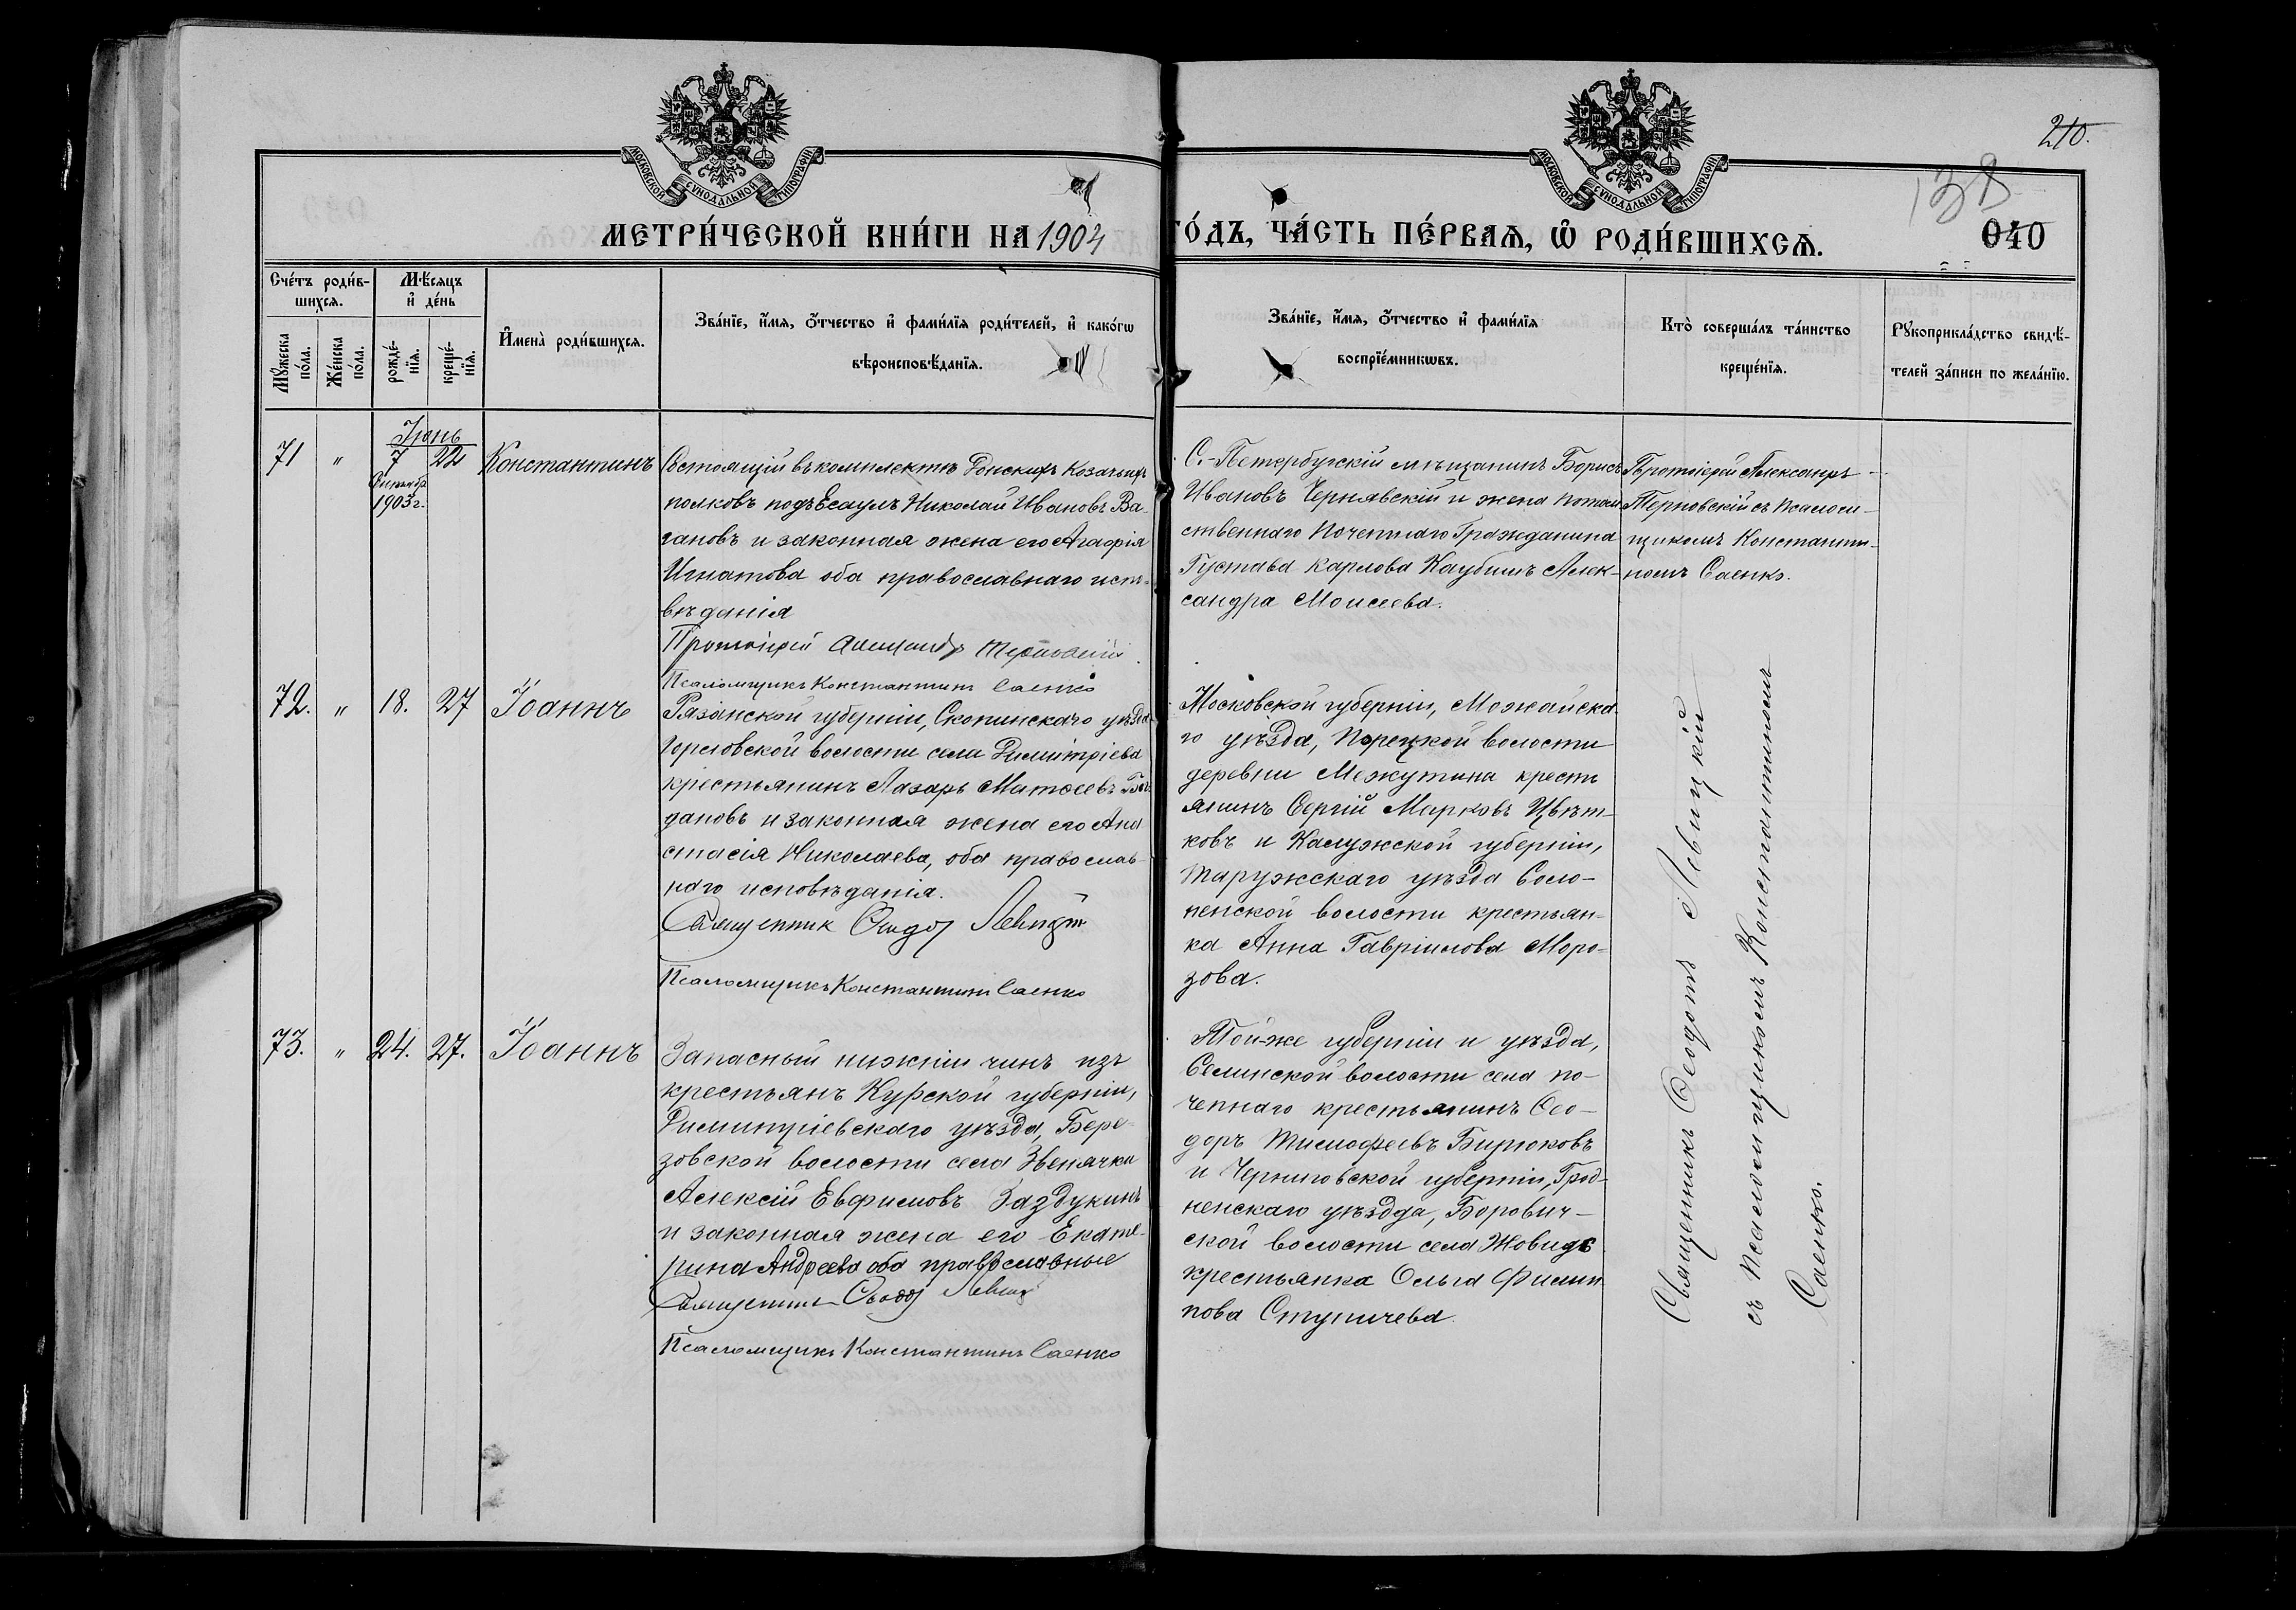 210.
138
040
МОСКОВСКОЙ СѴНОДАЛЬНОЙ ТИПОГРАФІИ
МОСКОВСКОЙ СѴНОДАЛЬНОЙ ТИПОГРАФІИ
МЕТРИ́ЧЕСКОЙ КНИ́ГИ НА 1904
ГО́ДЪ, ЧА́СТЬ ПЕ́РВАѦ, Ѡ РОДИ́ВШИХСѦ.
Сче́тъ роди́в-
шихсѧ.
Мѣ́сѧцъ
и҆ де́нь
Мꙋ́жеска
по́ла.
Же́нска
по́ла.
рожде́-
нїѧ.
креще́-
нїѧ.
И҆мена̀ роди́вшихсѧ.
Зва́нїе, и҆́мѧ, ѻ҆́тчество и҆ фами́лїѧ роди́телей, и҆ како́гѡ
вѣроисповѣ́данїѧ.
Зва́нїе, и҆́мѧ, ѻ҆́тчество и҆ фами́лїѧ
воспрїе́мникѡвъ.
Кто̀ соверша́лъ та́инство
креще́нїѧ.
Рꙋкоприкла́дство свидѣ́-
телей за́писи по жела́нїю.
Іюнь
71 " 7 22 Константинъ
1903 г.
Состоящій въ комплектѣ Донскихъ Козачьихъ
полковъ подъесаулъ Николай Ивановъ Ва-
гановъ и законная жена его Агафія
Игнатова оба православнаго испо-
вѣданія
Протоіерей Александръ Терновскій
Псаломщикъ Константинъ Саенко
С.-Петербургскій мѣщанинъ Борисъ
Ивановъ Чернявскій и жена потом
ственнаго Почетнаго Гражданина
Густава Карлова Каубишъ Алек-
сандра Моисеева.
Протоіерей Александръ
Терновскій съ псалом-
щикомъ Константи-
номъ Саенко.
72. " 18. 27 Іоаннъ
Рязанской губерніи, Скопинскаго уѣзда
Горловской волости села Димитріева
крестьянинъ Лазарь Матѳеевъ Бог-
дановъ и законная жена его Ана
стасія Николаева, оба православ-
наго исповѣданія.
Священникъ Ѳеодотъ Левицкій
Псаломщикъ Константинъ Саенко
Московской губерніи, Можайска-
го уѣзда, Порецкой волости
деревни Межутина крестъ
янинъ Сергій Марковъ Цвѣт-
ковъ и Калужской губерніи,
Таружскаго уѣзда Соло-
пенской волости крестьян-
ка Анна Гавріилова Моро-
зова.
73. " 24. 27. Іоаннъ
Запасный нижній чинъ изъ
крестьянъ Курской губерніи,
Димитріевскаго уѣзда, Бере-
зовской волости села Звенячки
Алексій Евфимовъ Заздукинъ
и законная жена его Екате-
рина Андреева оба православные
Священникъ Ѳеодотъ Левицкій
Псаломщикъ Константинъ Саенко
Той-же губерніи и уѣзда,
Селинской волости села По-
чепнаго крестьянинъ Ѳео-
доръ Тимофеевъ Бирюковъ
и Черниговской губерніи, Грод-
ненскаго уѣзда, Борович-
ской волости села Жовидь
крестьянка Ольга Филип
пова Ступичева.
Священникъ Ѳеодотъ Левицкій
съ псаломщикомъ Константиномъ
Саенко.